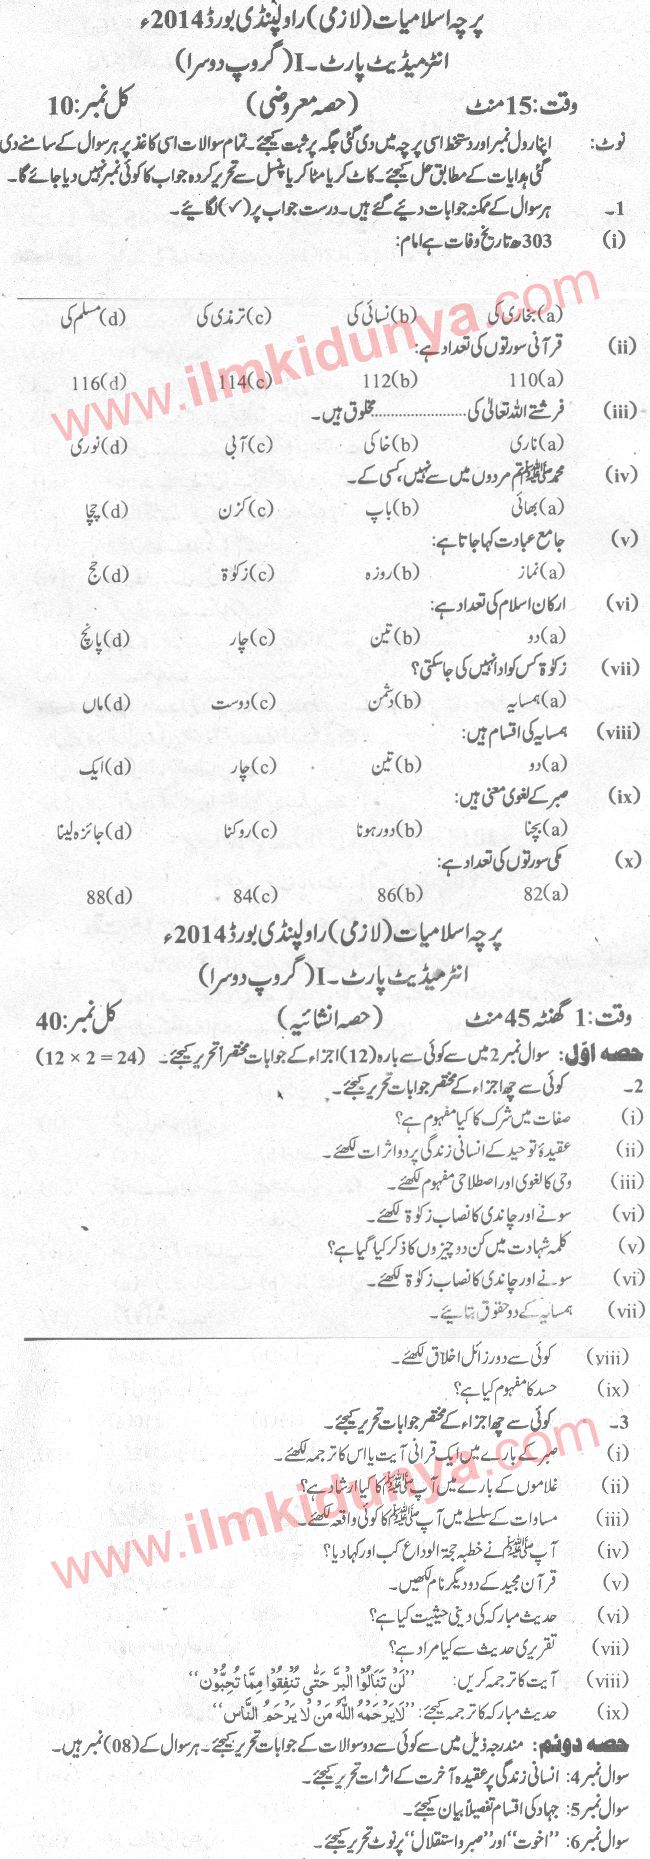 پرچہ اسلامیات (لازمی) راولپنڈی بورڈ 2014ء
انٹرمیڈیٹ پارٹ۔I (گروپ دوسرا)
وقت: 15 منٹ (حصہ معروضی) کل نمبر: 10
نوٹ: اپنا رول نمبر اور دستخط اسی پرچہ میں دی گئی جگہ پر ثبت کیجئے۔ تمام سوالات اسی کاغذ پر ہر سوال کے سامنے دی
گئی ہدایات کے مطابق حل کیجئے۔ کاٹ کر یا مٹا کر یا پنسل سے تحریر کردہ جواب کا کوئی نمبر نہیں دیا جائے گا۔
1۔ ہر سوال کے ممکنہ جوابات دیئے گئے ہیں۔ درست جواب پر (✓) لگائیے۔
(i) 303ھ تاریخ وفات ہے امام:
(a) بخاری کی (b) نسائی کی (c) ترمذی کی (d) مسلم کی
(ii) قرآنی سورتوں کی تعداد ہے:
(a) 110 (b) 112 (c) 114 (d) 116
(iii) فرشتے اللہ تعالیٰ کی ........................ مخلوق ہیں۔
(a) ناری (b) خاکی (c) آبی (d) نوری
(iv) محمد ﷺ تم مردوں میں سے نہیں، کسی کے۔
(a) بھائی (b) باپ (c) کزن (d) چچا
(v) جامع عبادت کہا جاتا ہے:
(a) نماز (b) روزہ (c) زکوٰۃ (d) حج
(vi) ارکان اسلام کی تعداد ہے:
(a) دو (b) تین (c) چار (d) پانچ
(vii) زکوٰۃ کس کو ادا نہیں کی جا سکتی؟
(a) ہمسایہ (b) دشمن (c) دوست (d) ماں
(viii) ہمسایہ کی اقسام ہیں:
(a) دو (b) تین (c) چار (d) ایک
(ix) صبر کے لغوی معنی ہیں:
(a) بچنا (b) دور ہونا (c) روکنا (d) جائزہ لینا
(x) مکی سورتوں کی تعداد ہے:
(a) 82 (b) 86 (c) 84 (d) 88
پرچہ اسلامیات (لازمی) راولپنڈی بورڈ 2014ء
انٹرمیڈیٹ پارٹ۔I (گروپ دوسرا)
وقت: 1 گھنٹہ 45 منٹ (حصہ انشائیہ) کل نمبر: 40
حصہ اوّل: سوال نمبر 2 میں سے کوئی سے بارہ (12) اجزاء کے جوابات مختصراً تحریر کیجئے۔ (12 × 2 = 24)
2۔ کوئی سے چھ اجزاء کے مختصر جوابات تحریر کیجئے۔
(i) صفات میں شرک کا کیا مفہوم ہے؟
(ii) عقیدۂ توحید کے انسانی زندگی پر دو اثرات لکھئے۔
(iii) وحی کا لغوی اور اصطلاحی مفہوم لکھئے۔
(vi) سونے اور چاندی کا نصاب زکوٰۃ لکھئے۔
(v) کلمہ شہادت میں کن دو چیزوں کا ذکر کیا گیا ہے؟
(vi) سونے اور چاندی کا نصاب زکوٰۃ لکھئے۔
(vii) ہمسایہ کے دو حقوق بتائیے۔
(viii) کوئی سے دو رزائل اخلاق لکھئے۔
(ix) حسد کا مفہوم کیا ہے؟
3۔ کوئی سے چھ اجزاء کے مختصر جوابات تحریر کیجئے۔
(i) صبر کے بارے میں ایک قرآنی آیت یا اس کا ترجمہ لکھئے۔
(ii) غلاموں کے بارے میں آپ ﷺ کا کیا ارشاد ہے؟
(iii) مساوات کے سلسلے میں آپ ﷺ کا کوئی واقعہ لکھئے۔
(iv) آپ ﷺ نے خطبہ حجۃ الوداع کب اور کہاں دیا؟
(v) قرآن مجید کے دو دیگر نام لکھیں۔
(vi) حدیث مبارکہ کی دینی حیثیت کیا ہے؟
(vii) تقریری حدیث سے کیا مراد ہے؟
(viii) آیت کا ترجمہ کریں: ”لَنْ تَنَالُوا الْبِرَّ حَتّٰى تُنْفِقُوْا مِمَّا تُحِبُّوْن“
(ix) حدیث مبارکہ کا ترجمہ کیجئے: ”لَا يَرْحَمُهُ اللّٰهُ مَنْ لَا يَرْحَمُ النَّاس“
حصہ دوئم: مندرجہ ذیل میں سے کوئی سے دو سوالات کے جوابات تحریر کیجئے۔ ہر سوال کے (08) نمبر ہیں۔
سوال نمبر 4: انسانی زندگی پر عقیدہ آخرت کے اثرات تحریر کیجئے۔
سوال نمبر 5: جہاد کی اقسام تفصیلاً بیان کیجئے۔
سوال نمبر 6: ”اخوت“ اور ”صبر و استقلال“ پر نوٹ تحریر کیجئے۔
www.ilmkidunya.com
www.ilmkidunya.com